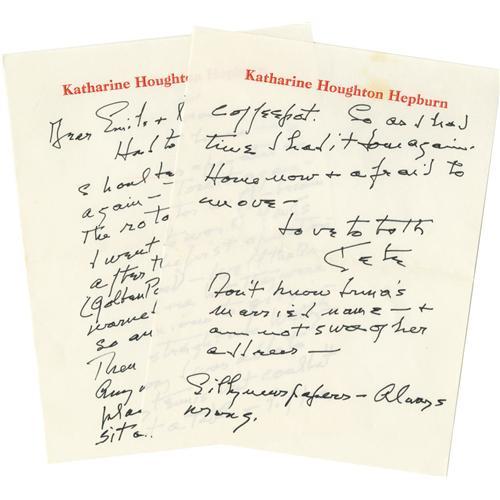 Katharine Hought
Dear Emily +
Had to
shoulde
again—
The roto
I went
after t
(Golden P
warned
so an
Then
Any
pla
sito..
Katharine Houghton Hepburn
Coffeepot. So as I had
time I had it done again.
Home now + afraid to
move—
Love to both
Kate
Don't know Irma's
married name— +
am not sure of her
address—
Silly newspapers— Always
wrong.